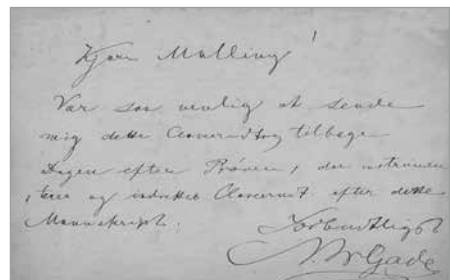 Kjære Malling!
Vær saa venlig at sende
mig dette Claverudtog tilbage
Dagen efter Prøven, der instrumen
teres og indrettes Claveret efter dette
Manuskript.
Forbindtligst
N. W. Gade